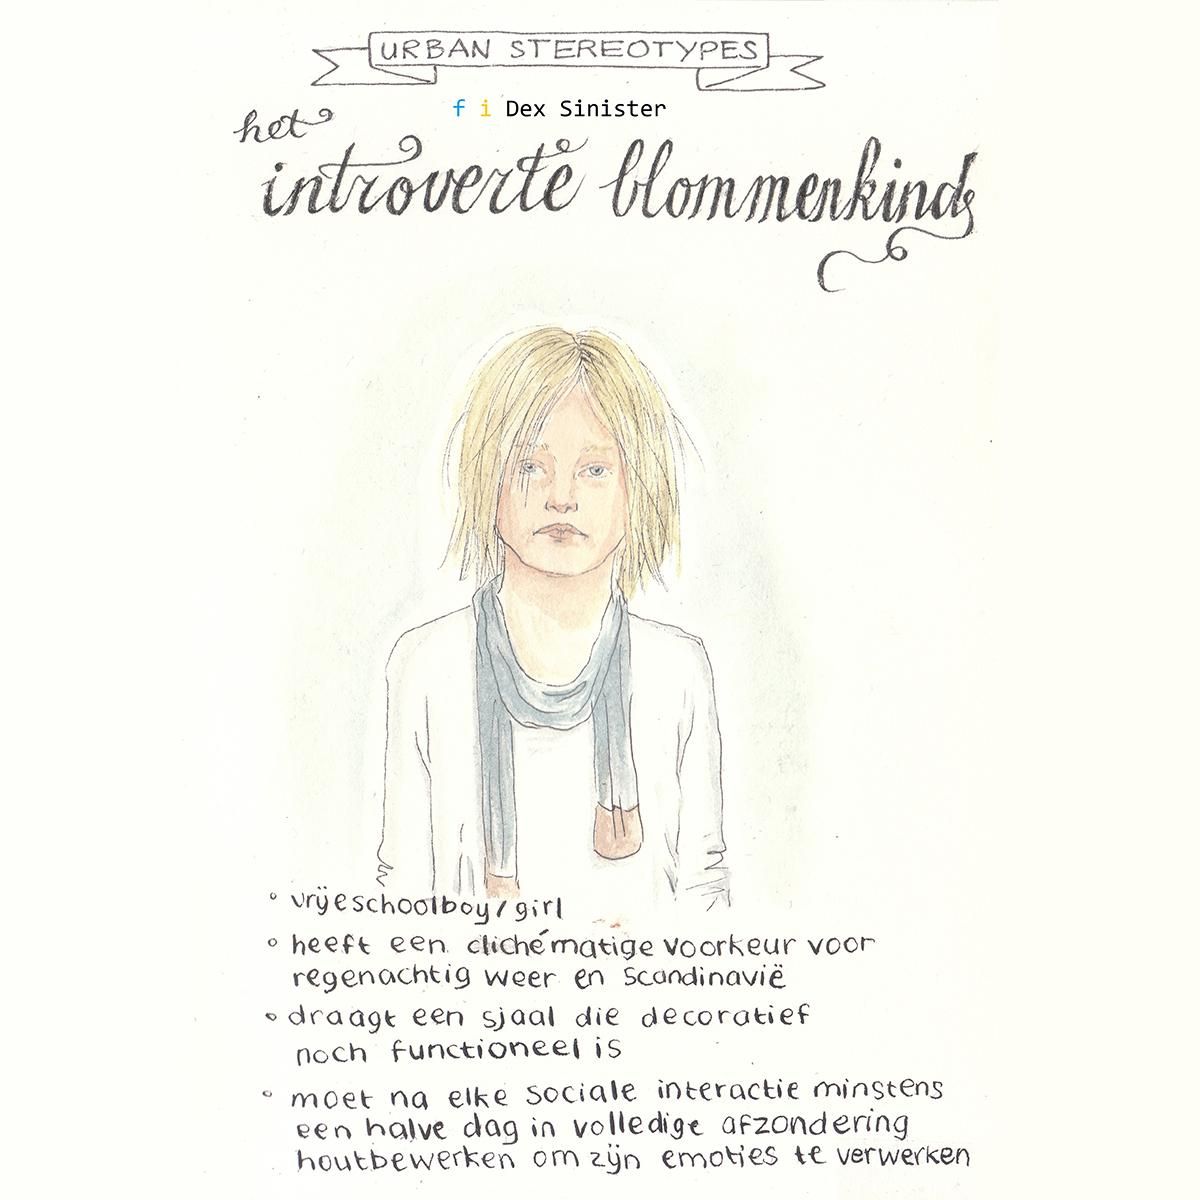 URBAN STEREOTYPES
f i Dex Sinister
het
introverte blommenkind
° vrijeschoolboy/girl
° heeft een clichématige voorkeur voor
regenachtig weer en Scandinavië
° draagt een sjaal die decoratief
noch functioneel is
° moet na elke sociale interactie minstens
een halve dag in volledige afzondering
houtbewerken om zijn emoties te verwerken